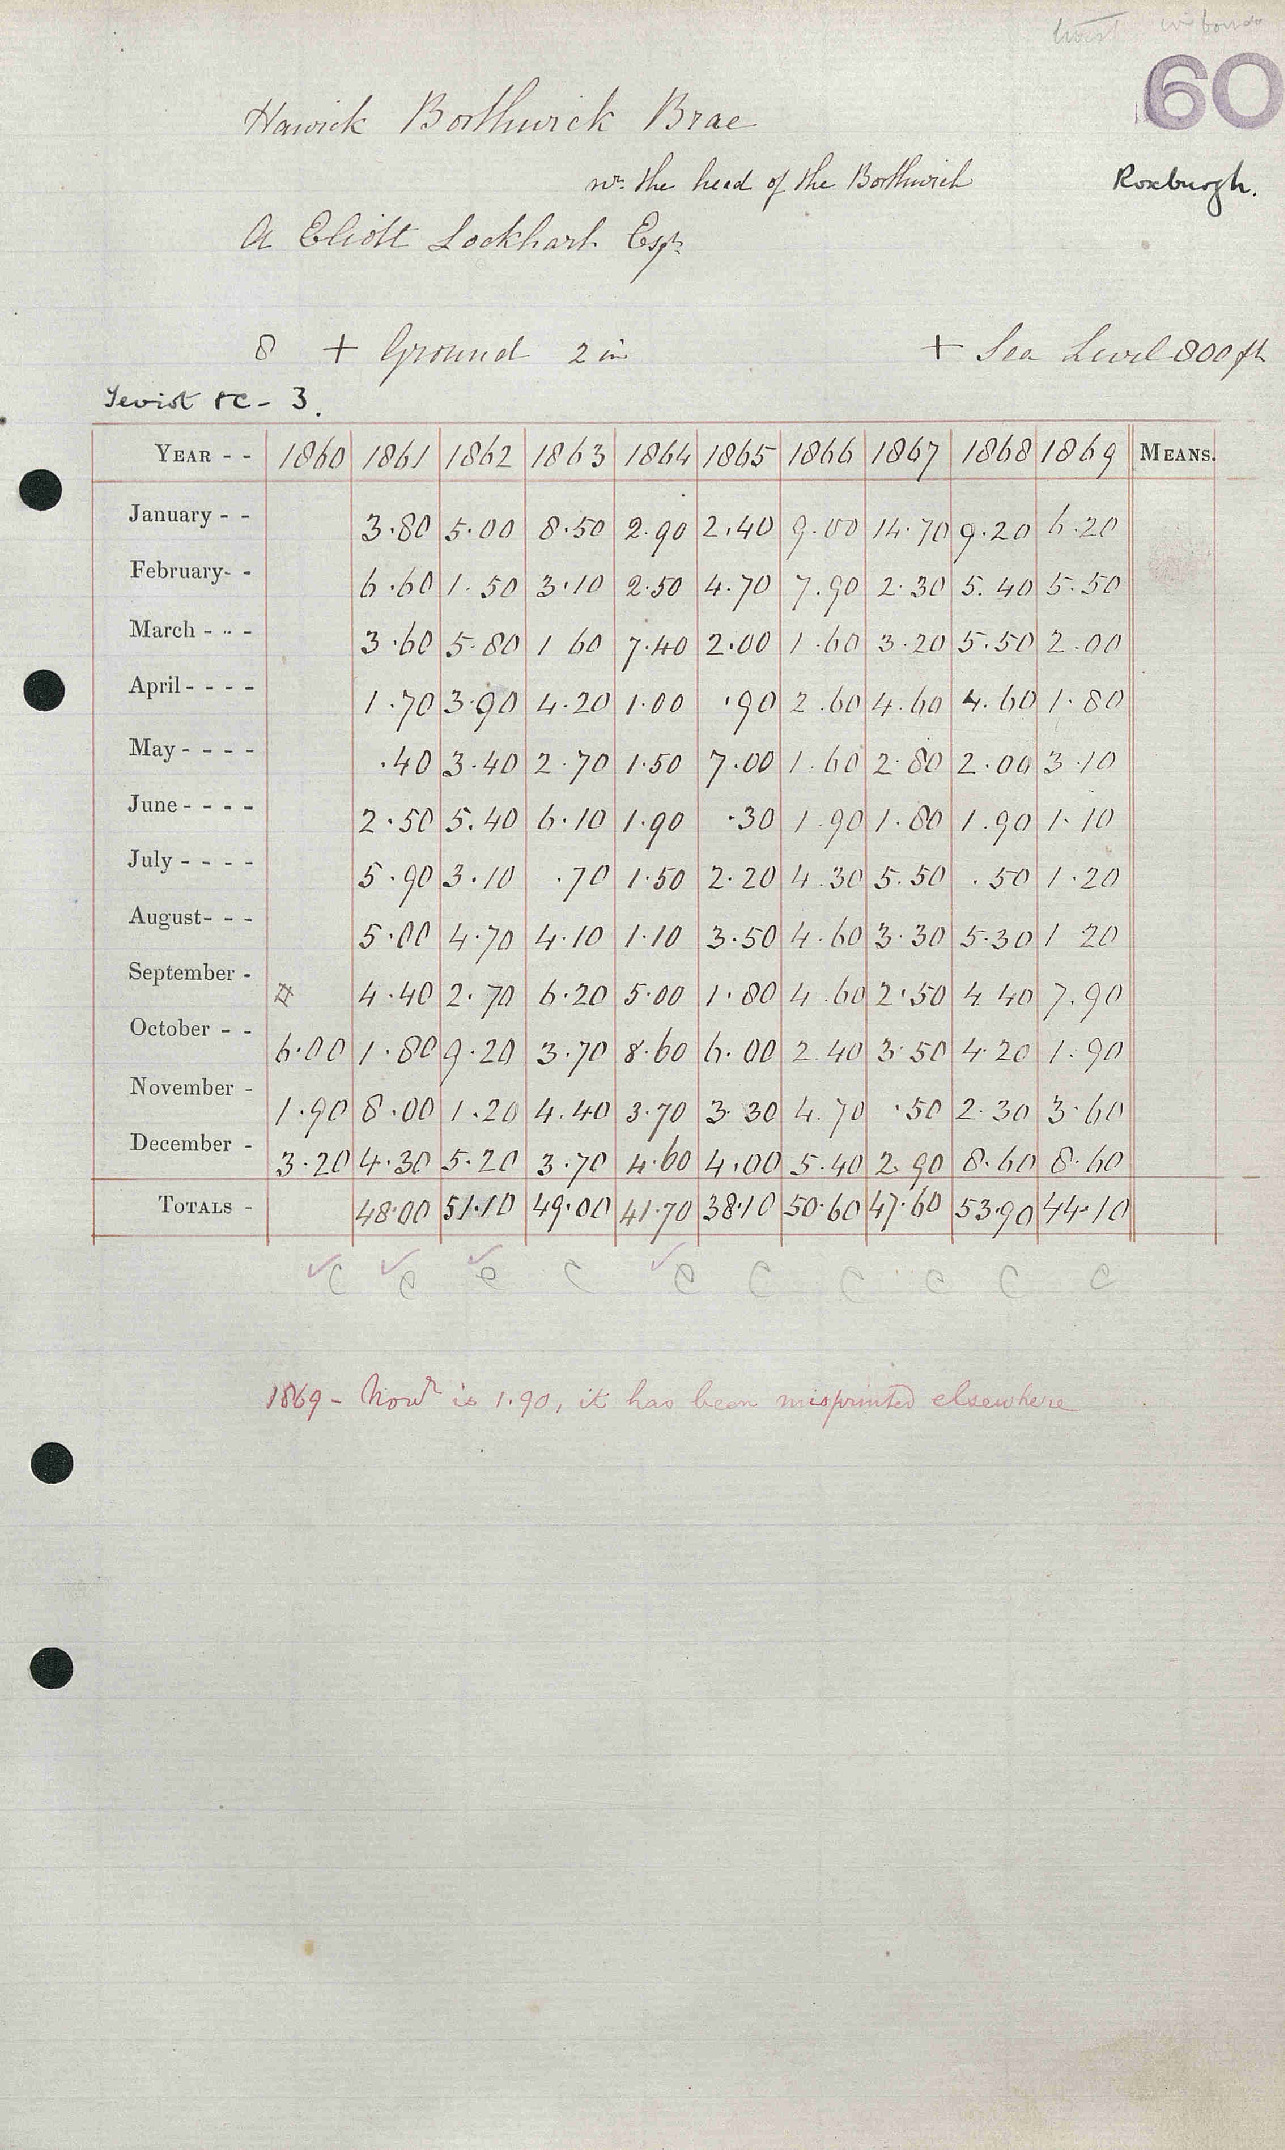 60
Hawick Borthwick Brae
nr. the head of the Borthwick
Roxburgh.
A Eliott Lockhart Esqr
8 + Ground 2 in + Sea Level 800 ft
Teviot &c - 3.
YEAR - - 1860 1861 1862 1863 1864 1865 1866 1867 1868 1869 MEANS.
January - - 3.80 5.00 8.50 2.90 2.40 9.00 14.70 9.20 6.20
February- - 6.60 1.50 3.10 2.50 4.70 7.90 2.30 5.40 5.50
March - - - 3.60 5.80 1 60 7.40 2.00 1.60 3.20 5.50 2.00
April - - - - 1.70 3.90 4.20 1.00 .90 2.60 4.60 4.60 1.80
May - - - - .40 3.40 2.70 1.50 7.00 1.60 2.80 2.00 3.10
June - - - - 2.50 5.40 6.10 1.90 .30 1.90 1.80 1.90 1.10
July - - - - 5.90 3.10 .70 1.50 2.20 4.30 5.50 .50 1.20
August- - - 5.00 4.70 4.10 1.10 3.50 4.60 3.30 5.30 1 20
September - 4.40 2.70 6.20 5.00 1.80 4.60 2.50 4 40 7.90
October - - 6.00 1.80 9.20 3.70 8.60 6.00 2.40 3.50 4.20 1.90
November - 1.90 8.00 1.20 4.40 3.70 3.30 4.70 .50 2.30 3.60
December - 3.20 4.30 5.20 3.70 4.60 4.00 5.40 2.90 8.60 8.60
TOTALS - 48.00 51.10 49.00 41.70 38.10 50.60 47.60 53.90 44.10
C C C C C C C C C C
1869 - Novr is 1.90, it has been misprinted elsewhere